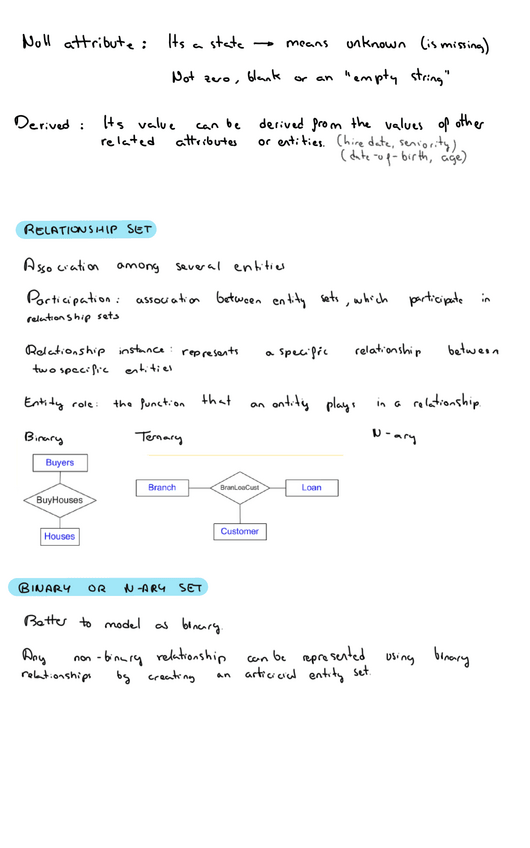 Null attribute : Its a state → means unknown (is missing)
Not zero, blank or an "empty string"
Derived : Its value can be derived from the values of other
related attributes or entities. (hire date, seniority)
(date-of-birth, age)
RELATIONSHIP SET
Association among several entities
Participation : association between entity sets, which participate in
relationship sets
Relationship instance : represents a specific relationship between
two specific entities
Entity role: the function that an entity plays in a relationship.
Binary Ternary N-ary
Buyers
BuyHouses
Houses
Branch BranLoaCust Loan
Customer
BINARY OR N-ARY SET
Better to model as binary.
Any non-binary relationship can be represented using binary
relationships by creating an articicial entity set.